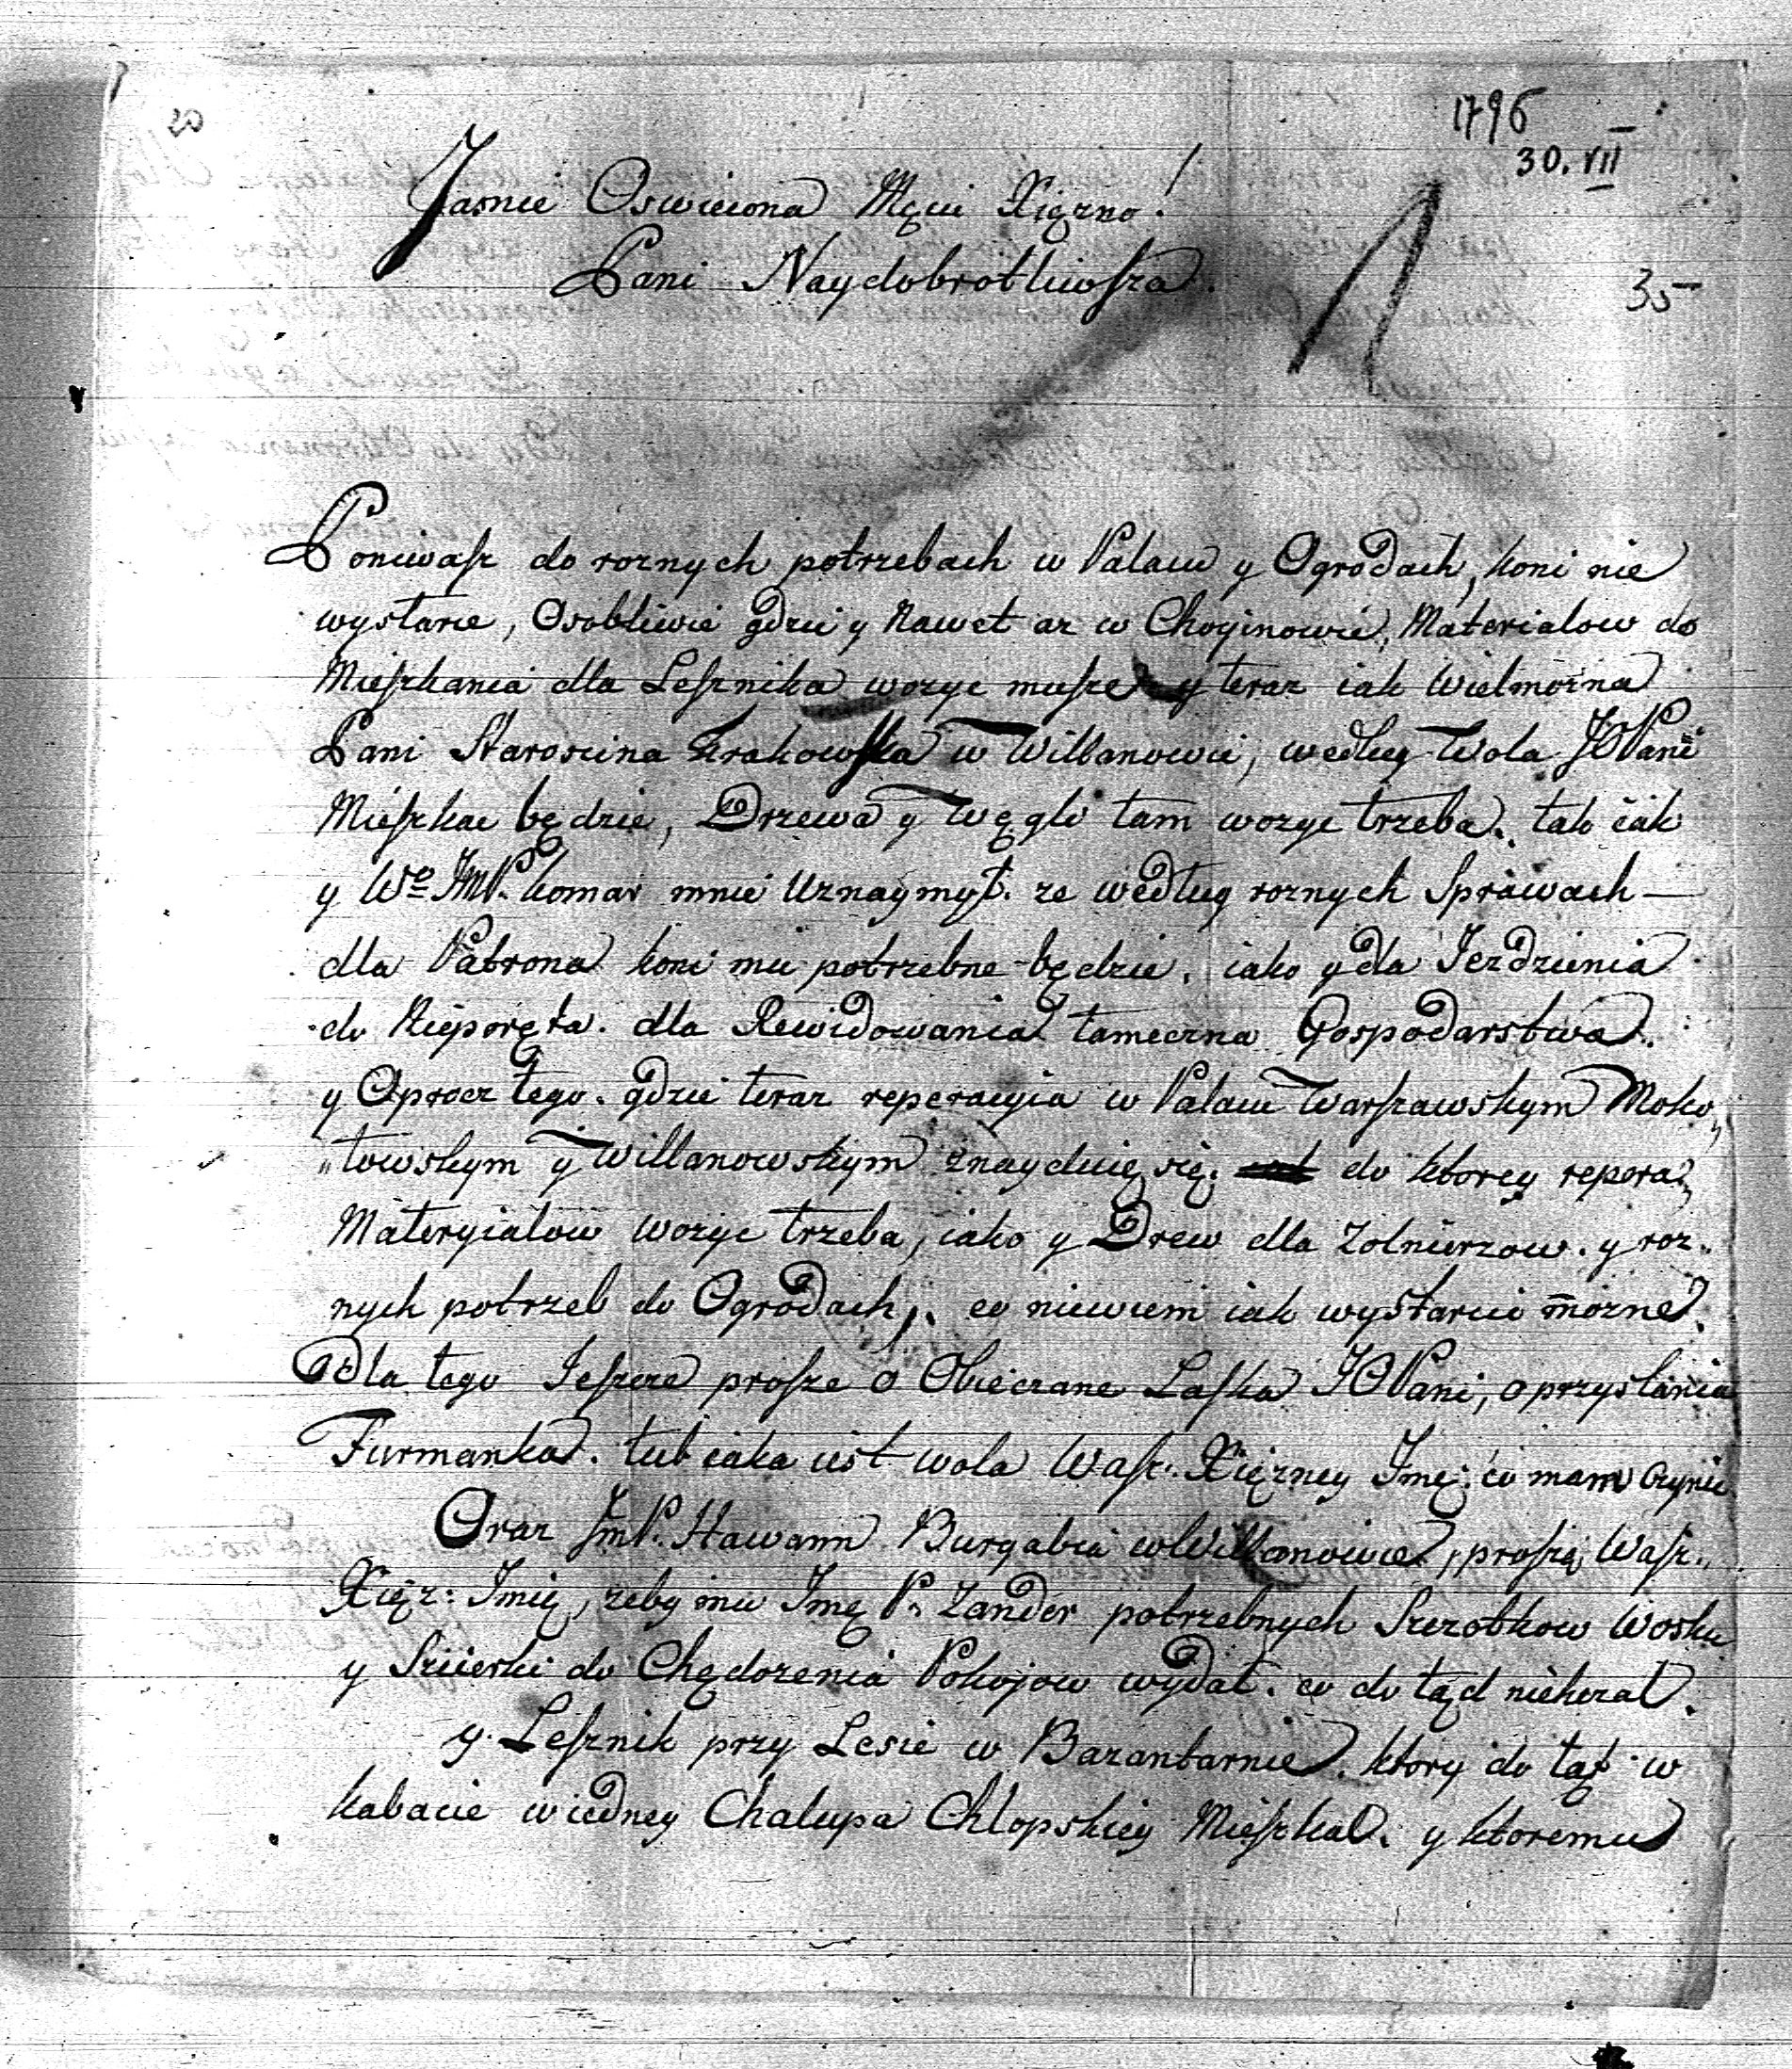 20
1796
30. VII
Jasnie Oswiecona Męcie Xięzno!
Pani Naydobrotliwsza.
35
Poniewasz do roznych potrzebach w Palacu y Ogrodach, koni nie
wystarce, Osobliwie gdzie y Nawet az w Choyinowie, Materialow do
Mieszkania dla Lesznika wozyc musze y teraz iak Wielmozna
Pani Staroscina Krakowska w Willanowie, wedlug Wola JOPani
Mieszkac będzie, Drzewa y Węgli tam wozyc trzeba, tak iak
y We JmP. Komar mnie Uznaymył. ze według roznych Sprawach
dla Patrona koni mu potrzebne będzie, iako y dla Jezdzienia
do Nieporęta. dla Rewidowania tameczna Gospodarstwa.
y Oprocz tego. gdzie teraz reperacyia w Palacu Warszawskym Moko„
„towskym y Willanowskym znayduię się; do ktorey repera„
Materyialow wozyc trzeba, iako y Drew dla Zolnierzow. y roz„
nych potrzeb do Ogrodach, co niewiem iak wystarcic mozne.
Dla tego Jeszcze prosze o Obieczane Laska JOPani, o przyslania
Furmanka. lub iaka iest wola Wasz: Xięzney Jmę: co mam czynic
Oraz JmP. Hawann Burgabia w Willanowie, proszą Wasz„
Xięz: Jmię, zeby mu Jmę P. Zander potrzebnych Szczotkow Wosku
y Scierki do Chędozenia Pokojow wydał. co do tąd niekazal.
y Lesznik przy Lesie w Bazantarnie. ktory do tąt w
kabacie w iedney Chalupa Chlopskiey Mieszkal. y ktoremu